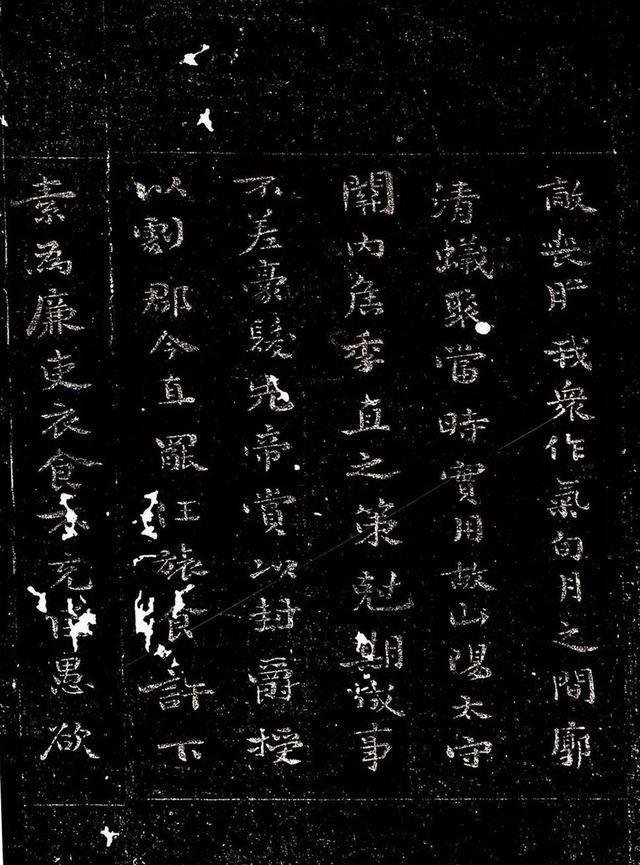 敵喪胆我衆作氣旬月之間廓
清蟻聚當時實用故山陽太守
關内侯季直之策尅期成事
不差豪髮先帝賞以封爵授
以劇郡今直罷任旅食許下
素爲廉吏衣食不充臣愚欲